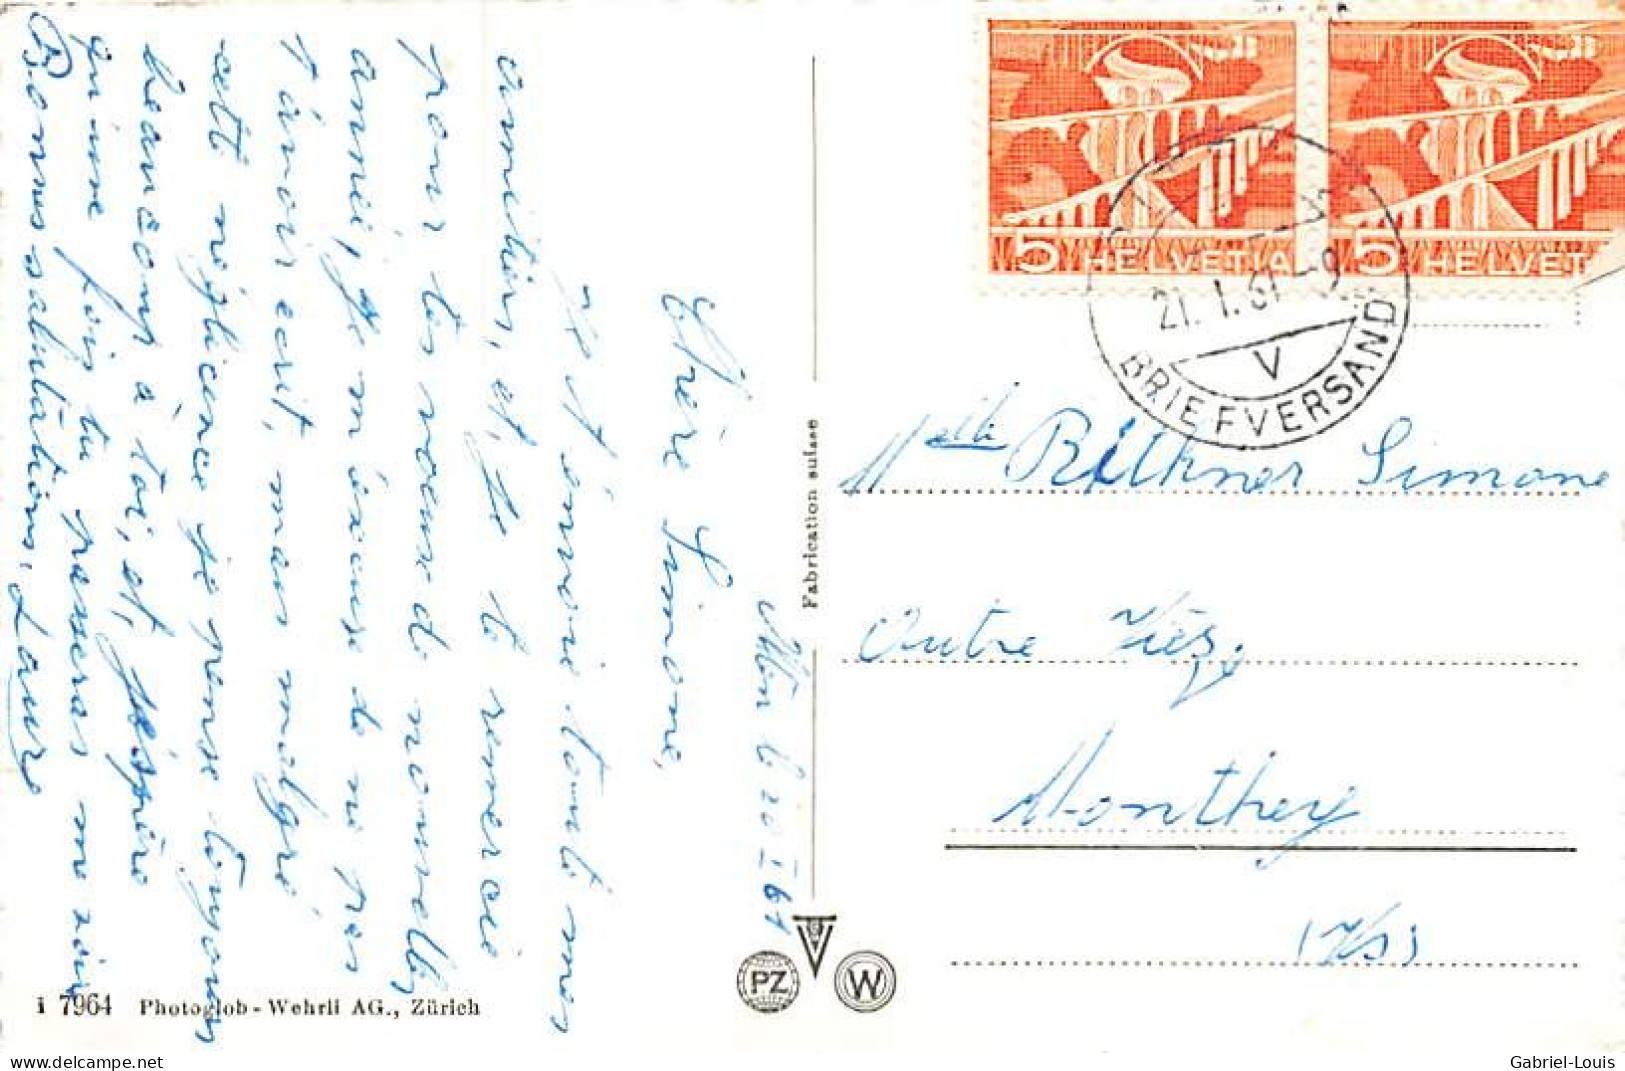 le 20 I 61
Chère Simone,
Je t'envoie toute mes
amitiés, et, je te remercie
pour tes voeux de nouvelle
année, je m'éxcuse de ne pas
t'avoir ecrit, mais malgré
cett négligence je pense toujours
beaucoup à toi, et, j'éspère
qu'une fois tu passeras me voir
Bonnes salutations, Laure
i 7964 Photoglob-Wehrli AG., Zürich
Fabrication suisse
PZ
W
5 HELVETIA
5 HELVET
21. 1. 61 -9
V
BRIEFVERSAND
Melle Simone
Outre Vièze
Monthey
(Vs)
delcampe.net
Gabriel-Louis